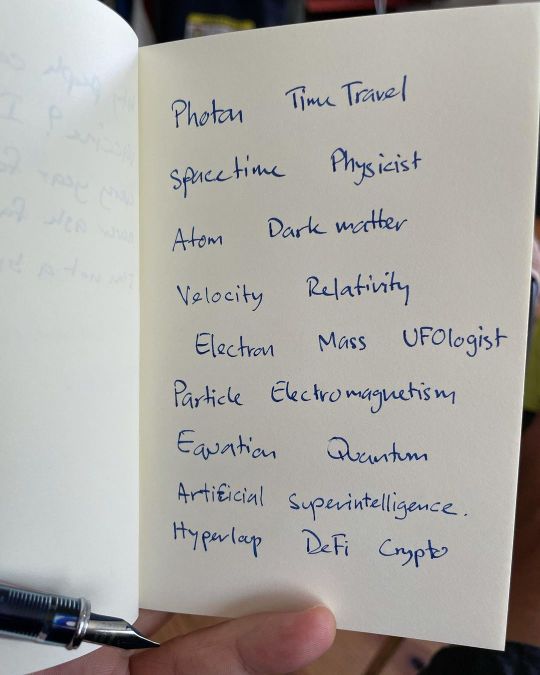 Photon Time Travel
Spacetime Physicist
Atom Dark matter
Velocity Relativity
Electron Mass UFOlogist
Particle Electromagnetism
Equation Quantum
Artificial Superintelligence.
Hyperloop DeFi Crypto